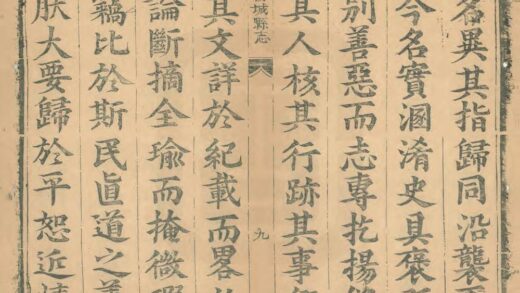 名異其指歸同沿襲
今名實溷淆史具褒
別善惡而志專扢揚
其人核其行跡其事
城縣志 九
其文詳於紀載而畧
論斷摘全瑜而掩微瑕
藕比於斯民直道之
朕大要歸於平恕近